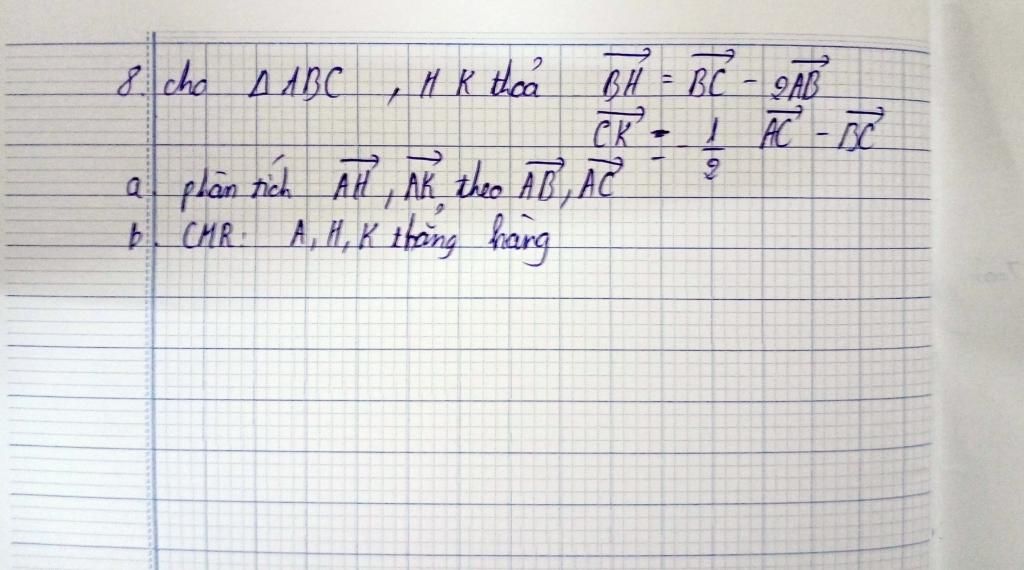 8. cho Δ ABC , H K thoả $\overrightarrow{BH} = \overrightarrow{BC} - 2\overrightarrow{AB}$
$\overrightarrow{CK} = -\frac{1}{2} \overrightarrow{AC} - \overrightarrow{BC}$
a. phân tích $\overrightarrow{AH}$, $\overrightarrow{AK}$ theo $\overrightarrow{AB}$, $\overrightarrow{AC}$
b. CMR: A, H, K thẳng hàng